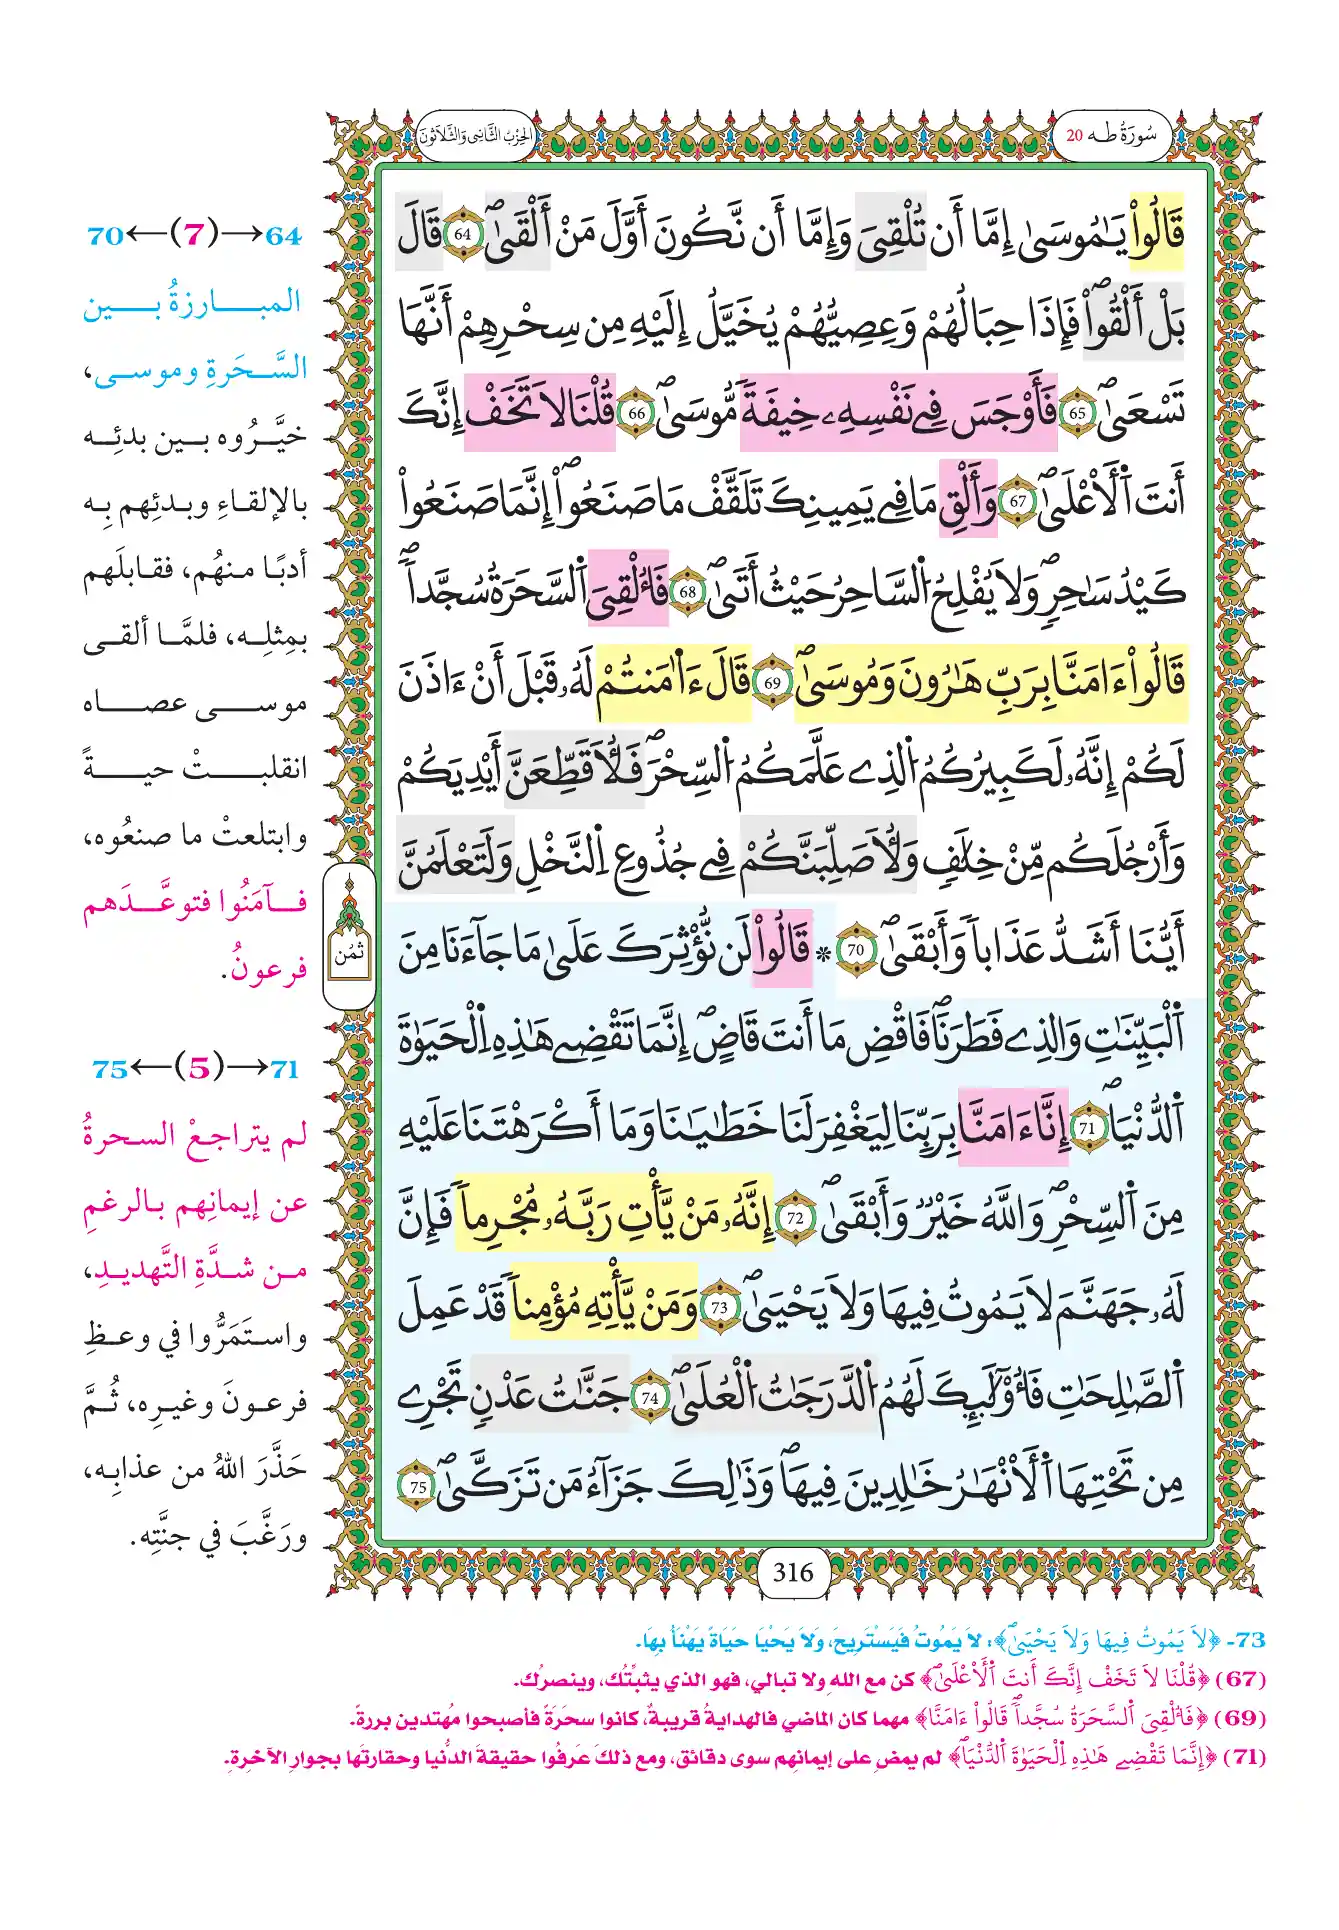 سُورَةُ طه 20
الحِزْبُ الثَّانِي وَالثَّلَاثُونَ
قَالُواْ يَٰمُوسَىٰٓ إِمَّآ أَن تُلْقِيَ وَإِمَّآ أَن نَّكُونَ أَوَّلَ مَنْ أَلْقَىٰۖ 64 قَالَ
بَلْ أَلْقُواْۖ فَإِذَا حِبَالُهُمْ وَعِصِيُّهُمْ يُخَيَّلُ إِلَيْهِ مِن سِحْرِهِمْ أَنَّهَا
تَسْعَىٰۖ 65 فَأَوْجَسَ فِے نَفْسِهِۦ خِيفَةً مُّوسَىٰۖ 66 قُلْنَا لَا تَخَفْ إِنَّكَ
أَنتَ اَ۬لْأَعْلَىٰۖ 67 وَأَلْقِ مَا فِے يَمِينِكَ تَلَقَّفْ مَا صَنَعُوٓاْۖ إِنَّمَا صَنَعُواْ
كَيْدُ سَٰحِرٖۖ وَلَا يُفْلِحُ اُ۬لسَّاحِرُ حَيْثُ أَتَىٰۖ 68 فَأُلْقِيَ اَ۬لسَّحَرَةُ سُجَّداٗۖ
قَالُوٓاْ ءَامَنَّا بِرَبِّ هَٰرُونَ وَمُوسَىٰۖ 69 قَالَ ءَا۬مَنتُمْ لَهُۥ قَبْلَ أَنْ ءَاذَنَ
لَكُمْ إِنَّهُۥ لَكَبِيرُكُمُ اُ۬لذِے عَلَّمَكُمُ اُ۬لسِّحْرَۖ فَلَأُقَطِّعَنَّ أَيْدِيَكُمْ
وَأَرْجُلَكُم مِّنْ خِلَٰفٖ وَلَأُصَلِّبَنَّكُمْ فِے جُذُوعِ اِ۬لنَّخْلِ وَلَتَعْلَمُنَّ
أَيُّنَآ أَشَدُّ عَذَاباٗ وَأَبْقَىٰۖ 70 * قَالُواْ لَن نُّؤْثِرَكَ عَلَىٰ مَا جَآءَنَا مِنَ
اَ۬لْبَيِّنَٰتِ وَالذِے فَطَرَنَاۖ فَاقْضِ مَآ أَنتَ قَاضٍۖ إِنَّمَا تَقْضِے هَٰذِهِ اِ۬لْحَيَوٰةَ
اَ۬لدُّنْيَآۖ 71 إِنَّآ ءَامَنَّا بِرَبِّنَا لِيَغْفِرَ لَنَا خَطَٰيَٰنَا وَمَآ أَكْرَهْتَنَا عَلَيْهِ
مِنَ اَ۬لسِّحْرِۖ وَاللَّهُ خَيْرٞ وَأَبْقَىٰۖ 72 إِنَّهُۥ مَنْ يَّأْتِ رَبَّهُۥ مُجْرِماٗ فَإِنَّ
لَهُۥ جَهَنَّمَ لَا يَمُوتُ فِيهَا وَلَا يَحْيَىٰۖ 73 وَمَنْ يَّأْتِهِ مُؤْمِناٗ قَدْ عَمِلَ
اَ۬لصَّٰلِحَٰتِ فَأُوْلَٰٓئِكَ لَهُمُ اُ۬لدَّرَجَٰتُ اُ۬لْعُلَىٰۖ 74 جَنَّٰتُ عَدْنٖ تَجْرِے
مِن تَحْتِهَا اَ۬لْأَنْهَٰرُ خَٰلِدِينَ فِيهَاۖ وَذَٰلِكَ جَزَآءُ مَن تَزَكَّىٰۖ 75
316
ثُمُن
64→(7)←70
المبارزةُ بين
السَّحَرةِ وموسى،
خيَّرُوه بين بدئِه
بالإلقاءِ وبدئِهم بِه
أدبًا منهُم، فقابلَهم
بمِثلِه، فلمَّا ألقى
موسى عصاه
انقلبتْ حيةً
وابتلعتْ ما صنعُوه،
فآمَنُوا فتوعَّدَهم
فرعونُ.
71→(5)←75
لم يتراجعْ السحرةُ
عن إيمانِهم بالرغمِ
من شدَّةِ التَّهديدِ،
واستَمَرُّوا في وعظِ
فرعونَ وغيرِه، ثُمَّ
حَذَّرَ اللهُ من عذابِه،
ورَغَّبَ في جنَّتِه.
73- ﴿لَا يَمُوتُ فِيهَا وَلَا يَحْيَىٰۖ﴾: لا يَمُوتُ فَيَسْتَرِيحَ، وَلَا يَحْيَا حَيَاةً يَهْنَأُ بِهَا.
(67) ﴿قُلْنَا لَا تَخَفْ إِنَّكَ أَنتَ اَ۬لْأَعْلَىٰۖ﴾ كن مع اللهِ ولا تبالي، فهو الذي يثبتُّك، وينصرُك.
(69) ﴿فَأُلْقِيَ اَ۬لسَّحَرَةُ سُجَّداٗۖ قَالُوٓاْ ءَامَنَّا﴾ مهما كان الماضي فالهدايةُ قريبةٌ، كانوا سحرَةً فأصبحوا مُهتدين بررةً.
(71) ﴿إِنَّمَا تَقْضِے هَٰذِهِ اِ۬لْحَيَوٰةَ اَ۬لدُّنْيَآۖ﴾ لم يمضِ على إيمانِهم سوى دقائق، ومع ذلكَ عَرفُوا حقيقةَ الدُّنيا وحقارتَها بجوارِ الآخرةِ.